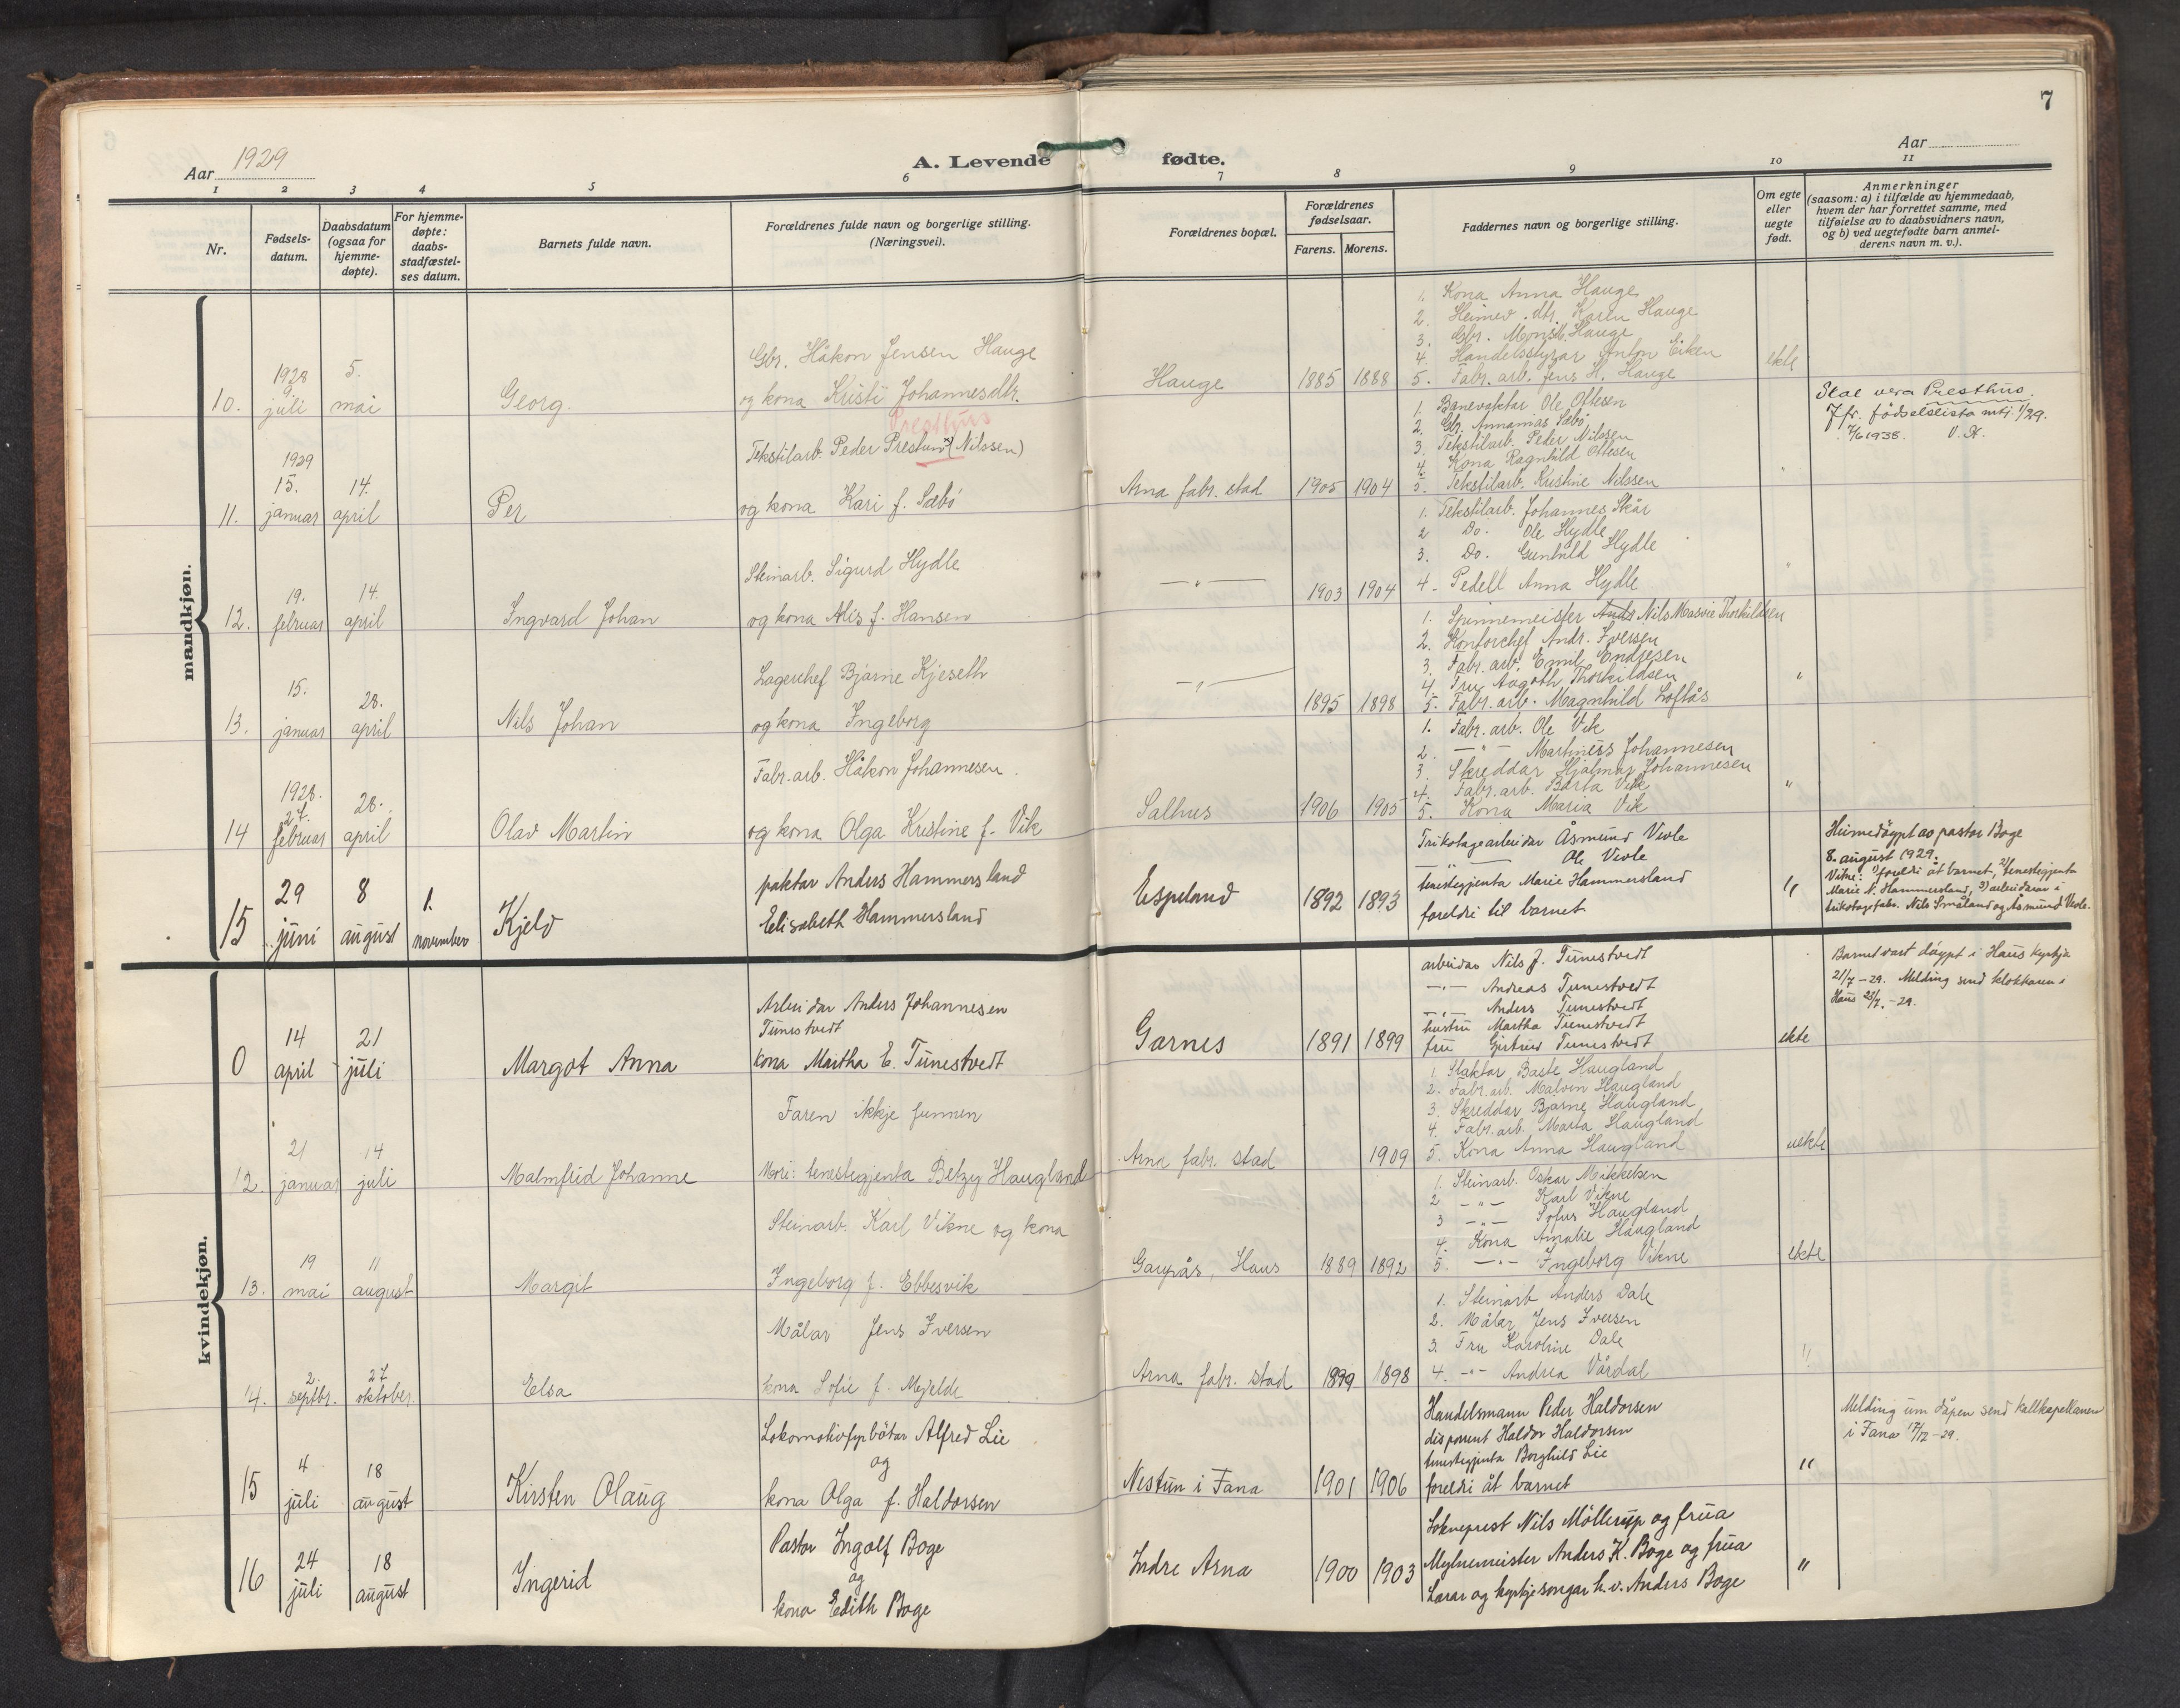 7
Aar 1929
A. Levende fødte.
Aar
1 2 3 4 5 6 7 8 9 10 11
Nr.
Fødsels-
datum.
Daabsdatum
(ogsaa for
hjemme-
døpte).
For hjemme-
døpte:
daabs-
stadfæstel-
ses datum.
Barnets fulde navn.
Forældrenes fulde navn og borgerlige stilling.
(Næringsvei).
Forældrenes bopæl.
Forældrenes
fødselsaar.
Farens. Morens.
Faddernes navn og borgerlige stilling.
Om egte
eller
uegte
født.
Anmerkninger
(saasom: a) i tilfælde av hjemmedaab,
hvem der har forrettet samme, med
tilføielse av to daabsvidners navn,
og b) ved uegtefødte barn anmel-
derens navn m. v.).
mandkjøn.
10.
1928
9.
juli
5.
mai
Georg.
Gbr. Håkon Jensen Hauge
og kona Kristi Johannesdtr.
Hauge
1885 1888
1. Kona Anna Hauge
2. Heimev. dtr. Karen Hauge
3. Gbr. Mons Hauge
4. Handelsstyrar Anton Eiken
5. Fabr. arb. Jens H. Hauge
ekte
11.
1929
15.
januar
14.
april
Per
Presthus
Tekstilarb. Peder Prestun (Nilssen)
og kona Kari f. Sæbö
Arna fabr. stad
1905 1904
1. Banevaktar Ole Ottesen
2. Gbr. Annanias Sæbö
3. Tekstilarb. Peder Nilssen
4. Kona Ragnhild Ottesen
5. Tekstilarb. Kristine Nilssen
"
Skal vera Presthus.
Jfr. fødselslista mtj. 1/29.
7/6 1938. V. H.
12.
19.
februar
14.
april
Ingvard Johan
Steinarb. Sigurd Hydle
og kona Alis f. Hansen
— " —
1903 1904
1. Tekstilarb. Johannes Skår
2 Do. Ole Hydle
3. Do. Gunhild Hydle
4 - Pedell Anna Hydle
"
13.
15.
januar
28.
april
Nils Johan
Lagerchef Bjarne Kjeseth
og kona Ingeborg
— " —
1895 1898
1. Spinnemeister Andr Nils Masvie Thorkildsen
2. Kontorchef Andr. Iversen
3. Fabr. arb. Emil Endresen
4 Fru Aagoth Thorkildsen
5. Fabr. arb. Magnhild Loftås
"
14
1928.
27.
februar
28.
april
Olav Martin
Fabr. arb. Håkon Johannesen.
og kona Olga Kristine f. Vik
Salhus
1906 1905
1. Fabr. arb. Ole Vik
2. — " — Martines Johannesen
3. Skreddar Hjalmar Johannesen
4. Fabr. arb. Berta Vik
5. Kona Maria Vik
"
15
29
juni
8
august
1.
november
Kjeld
paktar Anders Hammersland
Elisabeth Hammersland
Espeland
1892 1893
Trikotagearbeidar Åsmund Veole
— " — Ole Veole
tenestegjenta Marie Hammersland
foreldri til barnet
"
Heimedöypt av pastor Boge
8. august 1929.
Vitne: 1) foreldri åt barnet, 2) tenestegjenta
Marie N. Hammersland, 3) arbeidarar i
trikotagefabr. Nils Småland og Åsmund Veole.
kvindekjøn.
0
14
april
21
juli
Margot Anna
Arbeidar Anders Johannesen
Tunestvedt
kona Martha E. Tunestvedt
Garnes
1891 1899
arbeidar Nils J. Tunestvedt
— " — Andreas Tunestvedt
— " — Anders Tunestvedt
hustru Martha Tunestvedt
fru Gjertrud Tunestvedt
ekte
Barnet vart döypt i Haus kyrkja
21/7 - 29. Melding send klokkaren i
Haus 23/7. - 29.
12.
21
januar
14
juli
Malmfrid Johanne
Faren ikkje funnen
Mori: tenestegjenta Betzy Haugland
Arna fabr. stad
1909
1. Vaktar Baste Haugland
2. Fabr. arb. Malvin Haugland
3. Skreddar Bjarne Haugland
4. Fabr. arb. Marta Haugland
5. Kona Anna Haugland
uekte
13.
19
mai
11
august
Margit
Steinarb. Karl Vikne og kona
Ingeborg f. Ebbesvik
Gaupås, Haus
1889 1892
1. Steinarb. Oskar Mikkelsen
2 — " — Karl Vikne
3 — " — Sofus Haugland
4. Kona Amalie Haugland
5. — " — Ingeborg Vikne
ekte
14.
2.
septbr.
27
oktober.
Elsa
Målar Jens Iversen
kona Sofie f. Mjelde
Arna fabr. stad
1899 1898
1. Steinarb Anders Dale
2. Målar Jens Iversen
3. Fru Karoline Dale
4. — " — Andrea Vårdal
"
15
4
juli
18
august
Kirsten Olaug
Lokomotivfyrbötar Alfred Lie
og
kona Olga f. Haldorsen
Nestun i Fana
1901 1906
Handelsmann Peder Haldorsen
disponent Haldor Haldorsen
tenestegjenta Borghild Lie
foreldri åt barnet
"
Melding um dåpen send kallkapellanen
i Fana 17/12 - 29.
16
24
juli
18
august
Ingerid
Pastor Ingolf Boge
og
kona Edith Boge
Indre Arna
1900 1903
Sokneprest Nils Möllerup og frua
Mylnemeister Anders K. Boge og frua
Lærar og kyrkjesongar h. v. Anders Boge
"